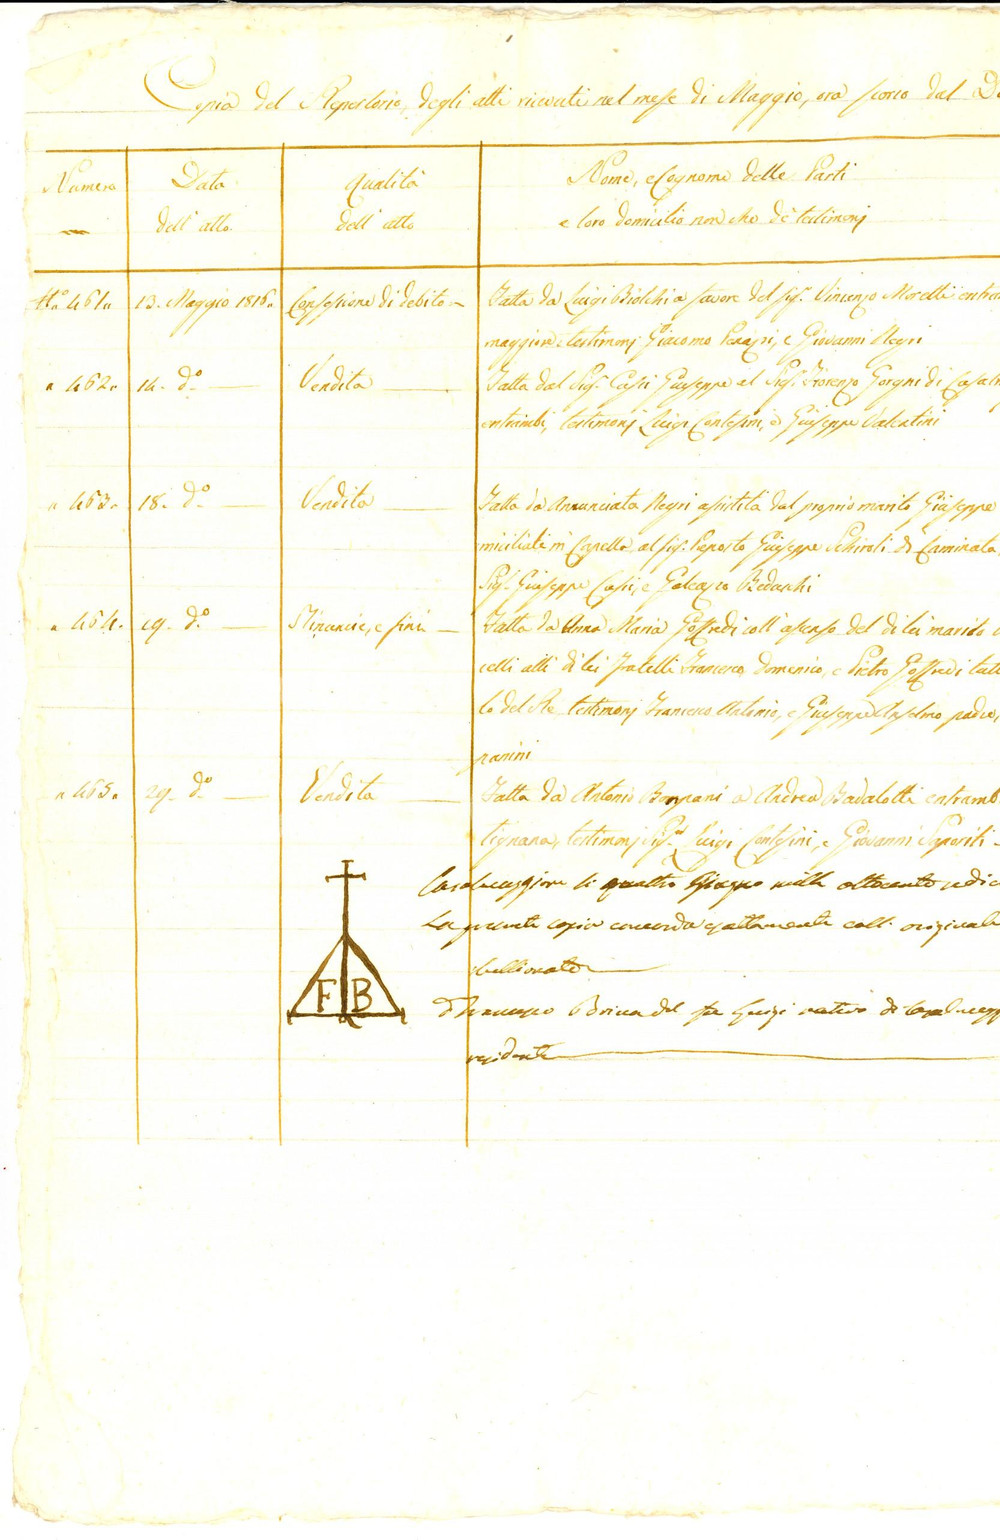 Copia del Repertorio, degli atti ricevuti nel mese di Maggio, ora scorso dal
Numero
Data
dell' atto.
Qualità
dell' atto
Nome, e Cognome delle Parti
e loro domicilio non che de' testimonj
N.° 461. 13. Maggio 1816. Confessione di debito — Fatta da Luigi Biolchi a favore del Sig.r Vincenzo Moretti
maggiore testimonj Giacomo e Giovanni Negri
" 462. 14. d.° — Vendita — Fatta dal Sig.r Casti Giuseppe al Sig.r Gorgni di
entrambi, testimonj Luigi Contesini, e Giuseppe Valentini
" 463. 18. d.° — Vendita — Fatta da Annunciata Negri assistita dal proprio marito Giuseppe
miciliati in Capella al Sig.r Giuseppe Schiroli di Caminata
Sig.r Giuseppe Casti, e Galeazzo Bedaschi
" 464. 19. d.° — Rinuncie, e fini — Fatta da Anna Maria Goffredi coll' assenso del di lei marito
celli alli di lei Fratelli Francesco Domenico, e Pietro Goffredi
lo del Re testimonj Francesco Antonio, e Giuseppe Anselmo padre,
nanini
" 465. 29. d.° — Vendita — Fatta da Antonio a Andrea Badalotti
tignana, testimonj Sig.r Luigi Contesini, e Giovanni Saporiti —
Casalmaggiore li quattro Giugno mille ottocento
La presente copia concorda esattamente coll' originale
F B
Francesco del fu Luigi nativo di
residente